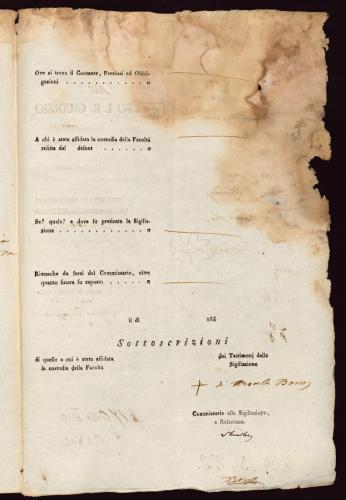 Ove si trova il Contante, Preziosi ed Obbli-
gazioni . . . . . . . . . . . „
A chi è stata affidata la custodia della Facoltà
relitta dal defont . . . . . . . . „
Se? quale? e dove fu praticata la Sigilla-
zione . . . . . . . . . . . . „
Rimarche da farsi dal Commissario, oltre
quanto finora fu esposto . . . . . . „
il dì 183
Sottoscrizioni
di quello a cui è stata affidata
la custodia della Facoltà
dei Testimonj della
Sigillazione
+ di
Commissario alla Sigillazione,
e Relazione.